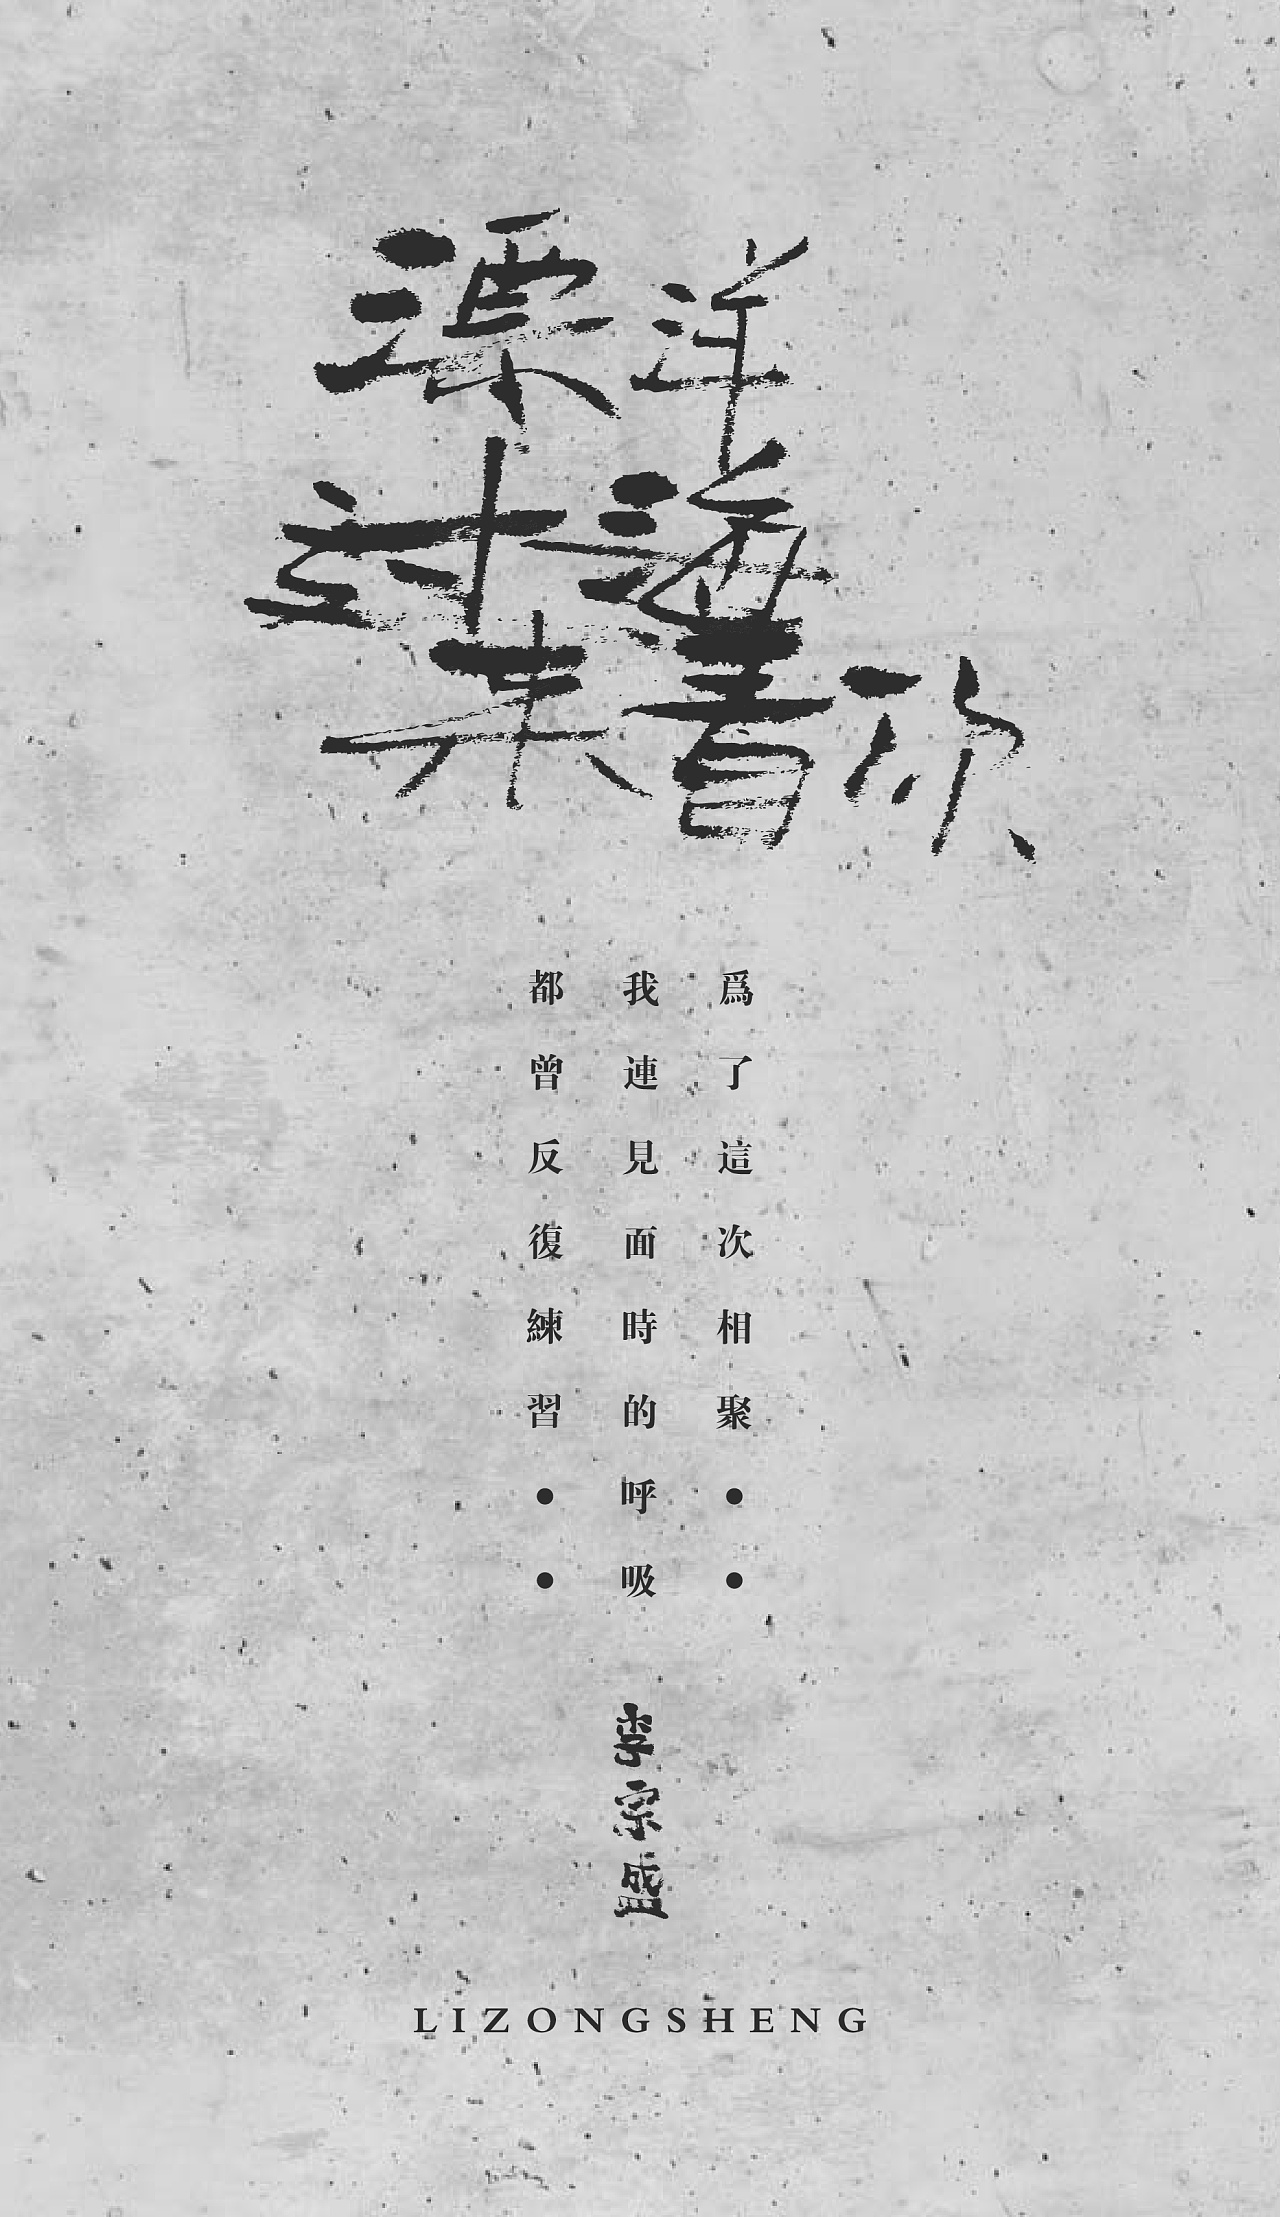 漂洋
过海
来看你
爲了這次相聚●●
我連見面時的呼吸
都曾反復練習●●
李宗盛
LIZONGSHENG